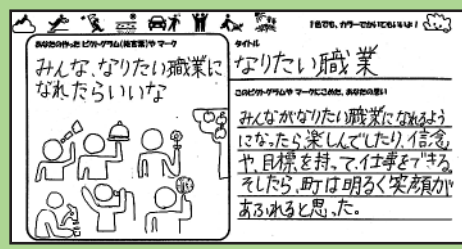 1色でも、カラーでかいてもいいよ!
あなたの作ったピクトグラム(絵言葉)や マーク
みんな、なりたい職業に
なれたらいいな
タイトル
なりたい職業
このピクトグラムや マークにこめた、あなたの思い
みんながなりたい職業になれるよう
になったら楽しんでしたり、信念
や、目標を持って、仕事をできる。
そしたら、町は明るく笑顔が
あふれると思った。